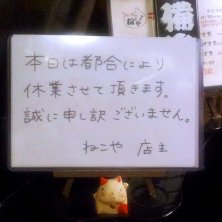 本日は都合により
休業させて頂きます。
誠に申し訳ございません。
ねこや 店主